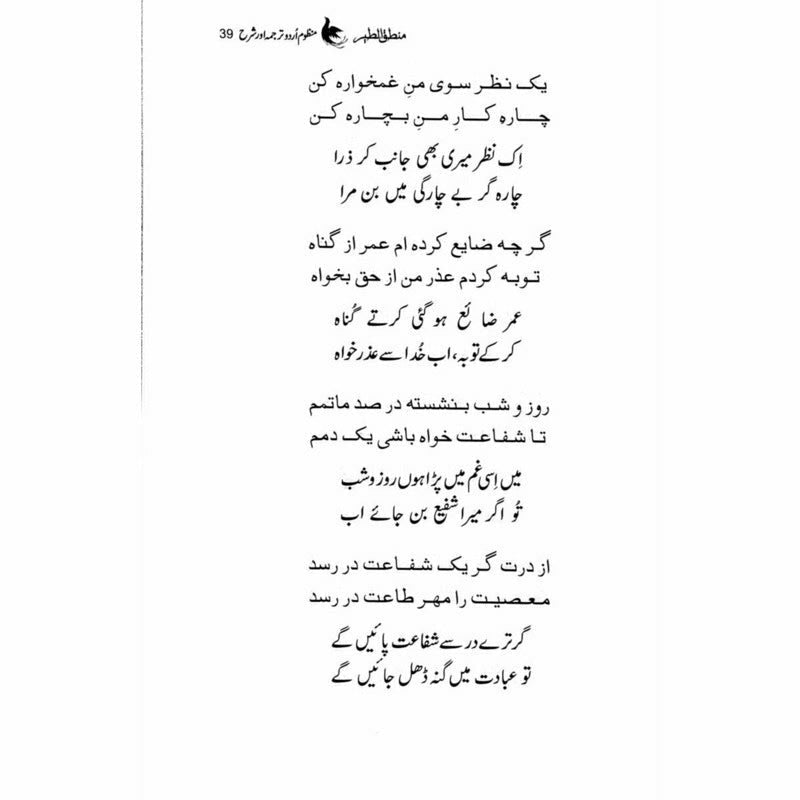 منطق الطیر منظوم اُردو ترجمہ اور شرح 39
یک نظر سوی منِ غمخوارہ کن
چارہِ کارِ منِ بچارہ کن
اِک نظر میری بھی جانب کر ذرا
چارہ گر بے چارگی میں بن مرا
گرچہ ضایع کردہ ام عمر از گناہ
توبہ کردم عذر من از حق بخواہ
عمر ضائع ہو گئی کرتے گُناہ
کر کے توبہ، اب خُدا سے عذر خواہ
روز و شب بنشستہ در صد ماتمم
تا شفاعت خواہ باشی یک دمم
میں اِسی غم میں پڑا ہوں روز و شب
تُو اگر میرا شفیع بن جائے اب
از درت گر یک شفاعت در رسد
معصیت را مہر طاعت در رسد
گر ترے در سے شفاعت پائیں گے
تو عبادت میں گنہ ڈھل جائیں گے